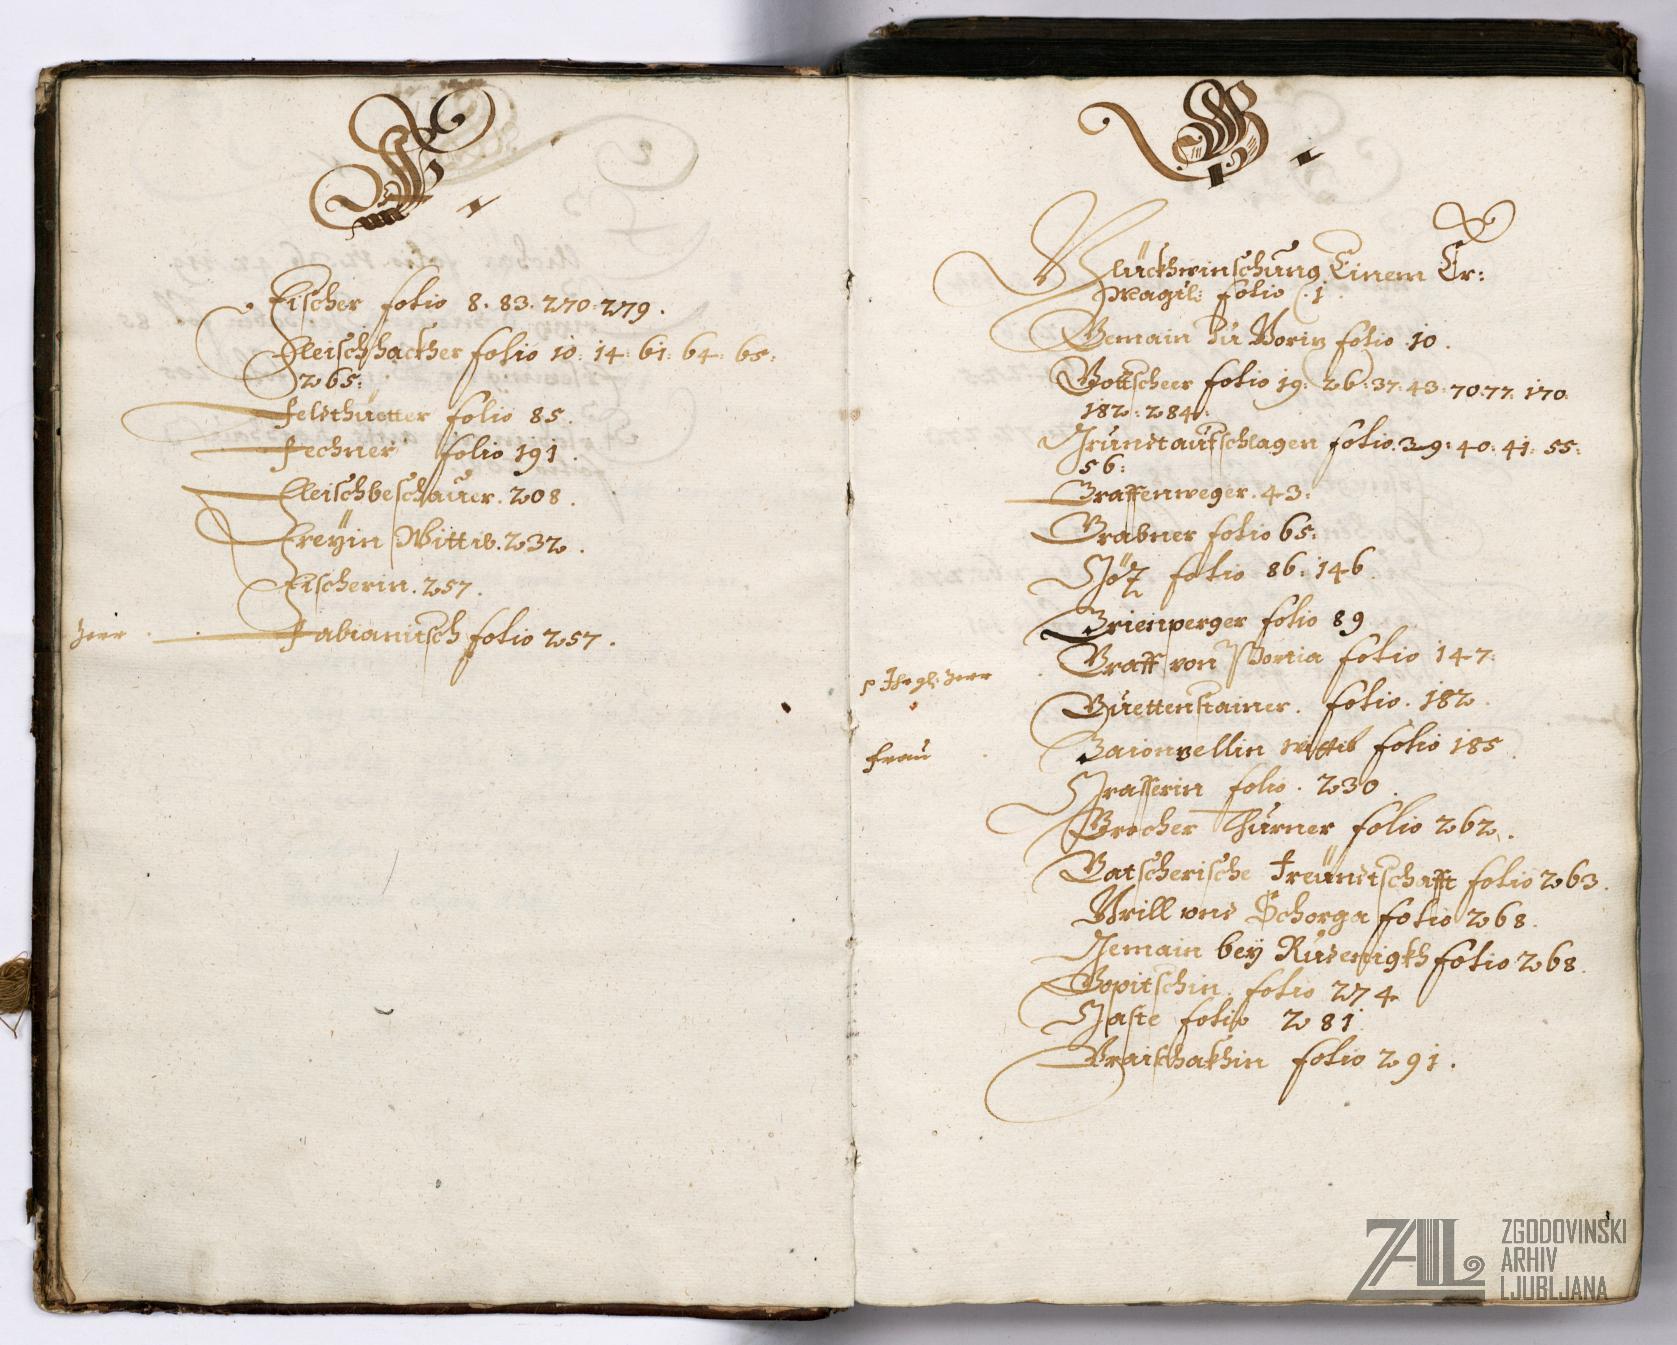 F
Fischer folio 8. 83. 270. 279.
Fleischhackher folio 10: 14: 61: 64: 65:
265:
Feldthuetter folio 85.
Fechner folio 191.
Fleischbeschauer. 208.
Freÿin Wittib. 232.
Fischerin. 257.
Herr Fabianitsch folio 257.
G
Glückhwinschung Einem Er:
Magil: folio 1.
Gemain zu folio 10.
Gottscheer folio 19: 26: 37: 43: 70: 77: 170
182: 284:
Grundtaufschlagen folio. 39: 40: 41: 55:
56:
Graffenweger. 43:
Grabner folio 65:
Götz folio 86: 146.
Grienperger folio 89
Herr Graff von Portia folio 147.
Guettenstainer. folio. 182.
Frau Gaionzellin wittib folio 185.
Grasserin folio. 230.
Grocher Thurner folio 262.
Gatscherische Freündtschafft folio 263.
Grill vnd Schorga folio 268.
Gemain beÿ Rudenigkh folio 268.
Gopitschin folio 274
Gaste folio 281
Graischakhin folio 291.
ZAL
ZGODOVINSKI
ARHIV
LJUBLJANA